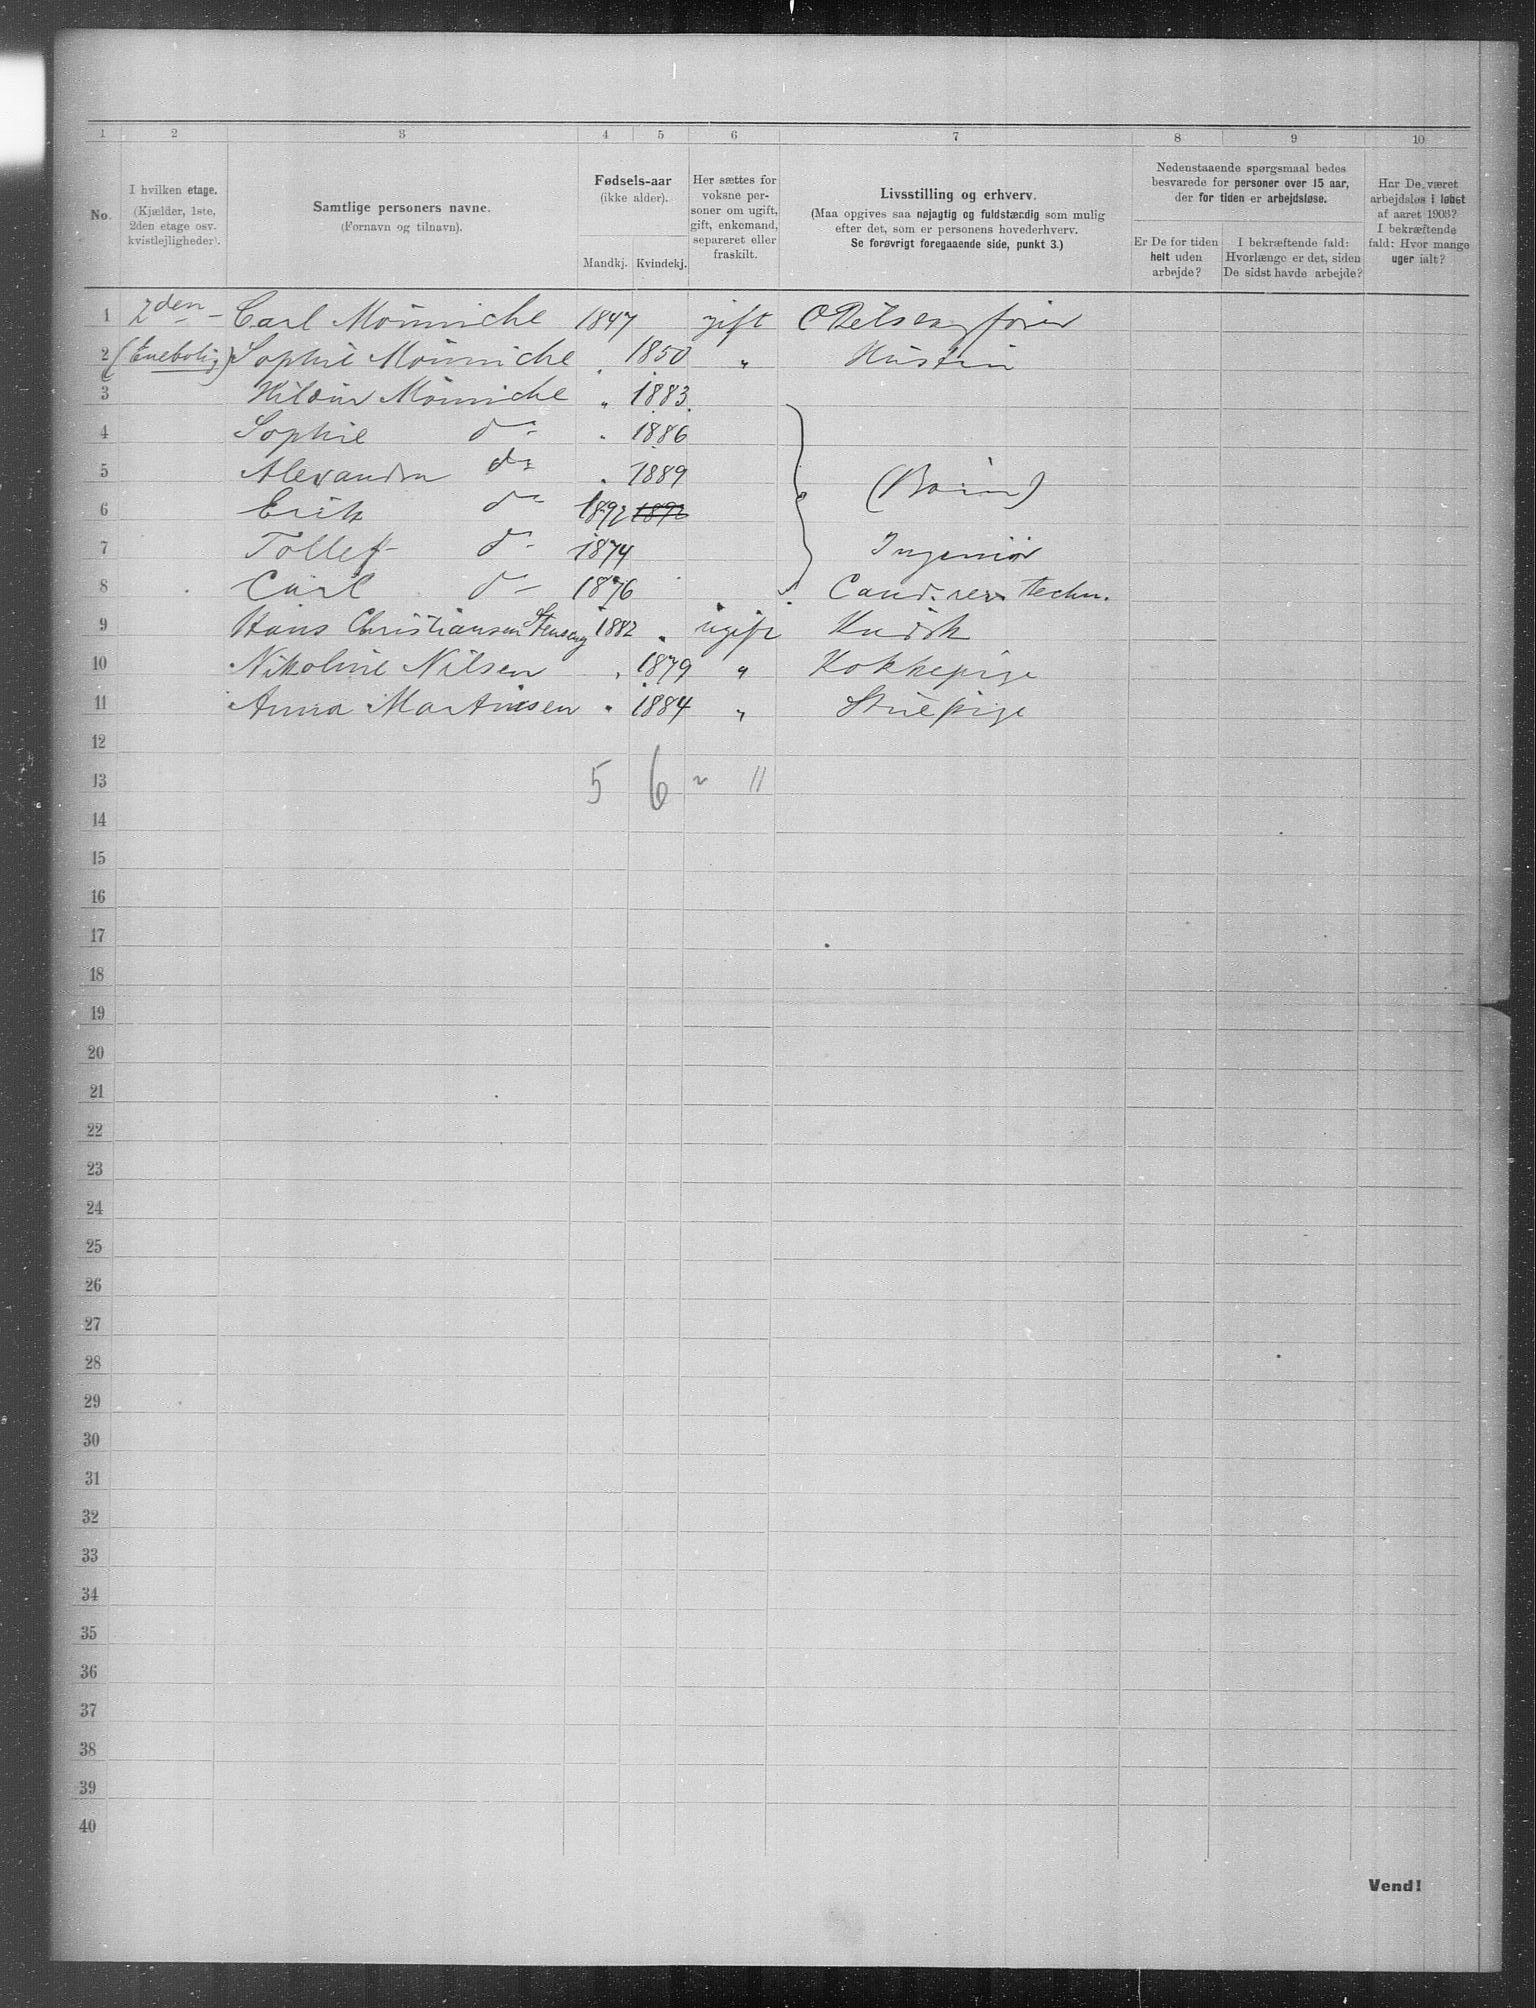 1 2 3 4 5 6 7 8 9 10
No.
I hvilken etage.
(Kjælder, 1ste,
2den etage osv.
kvistlejligheder).
Samtlige personers navne.
(Fornavn og tilnavn).
Fødsels-aar
(ikke alder).
Mandkj. Kvindekj.
Her sættes for
voksne per-
soner om ugift,
gift, enkemand,
separeret eller
fraskilt.
Livsstilling og erhverv.
(Maa opgives saa nøjagtig og fuldstændig som mulig
efter det, som er personens hovederhverv.
Se forøvrigt foregaaende side, punkt 3.)
Nedenstaaende spørgsmaal bedes
besvarede for personer over 15 aar,
der for tiden er arbejdsløse.
Er De for tiden
helt uden
arbejde?
I bekræftende fald:
Hvorlænge er det, siden
De sidst havde arbejde?
Har De været
arbejdsløs i løbet
af aaret 1903?
I bekræftende
fald: Hvor mange
uger ialt?
1 2den Carl Mönniche 1847 gift
2 (Enebolig) Sophie Mönniche " 1850 " Hustru
3 Mönniche " 1883
4 Sophie do " 1886
5 Alexandra do " 1889 (Børn)
6 Erik do 1892 1892
7 Tollef do 1874 Ingeniör
8 Carl do 1876 Cand. techn.
9 Hans Christiansen 1882 " ugift Kudsk
10 Nikoline Nilsen " 1879 " Kokkepige
11 Anna Martinsen " 1884 " Stuepige
12
13 5 6 11
14
15
16
17
18
19
20
21
22
23
24
25
26
27
28
29
30
31
32
33
34
35
36
37
38
39
40
Vend!